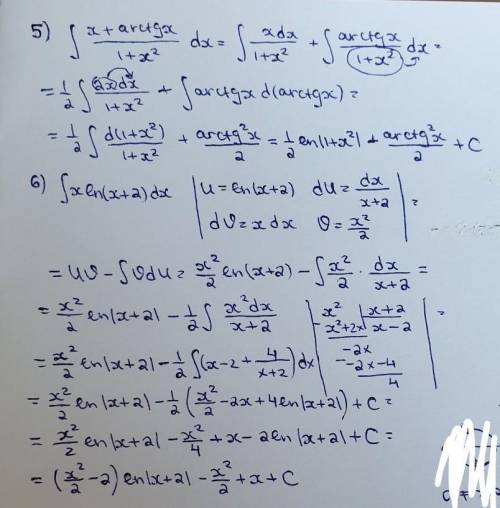 5) ∫ (x + arctgx)/(1+x²) dx = ∫ xdx/(1+x²) + ∫ arctgx/(1+x²) dx =
= 1/2 ∫ 2xdx/(1+x²) + ∫ arctgx d(arctgx) =
= 1/2 ∫ d(1+x²)/(1+x²) + arctg²x/2 = 1/2 ln|1+x²| + arctg²x/2 + C
6) ∫ x ln(x+2) dx | u = ln(x+2) du = dx/(x+2) | =
| dv = x dx v = x²/2 |
= uv - ∫ v du = x²/2 ln(x+2) - ∫ x²/2 · dx/(x+2) =
= x²/2 ln|x+2| - 1/2 ∫ x²dx/(x+2) | x² | x+2 | =
x²+2x | x-2
-2x
-2x-4
4
= x²/2 ln|x+2| - 1/2 ∫ (x-2 + 4/(x+2)) dx
= x²/2 ln|x+2| - 1/2 (x²/2 - 2x + 4 ln|x+2|) + C =
= x²/2 ln|x+2| - x²/4 + x - 2 ln|x+2| + C =
= (x²/2 - 2) ln|x+2| - x²/2 + x + C